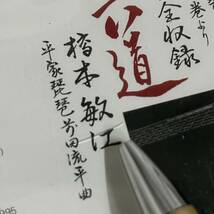 巻より
全収録
六道
橋本敏江
平家琵琶前田流平曲
995